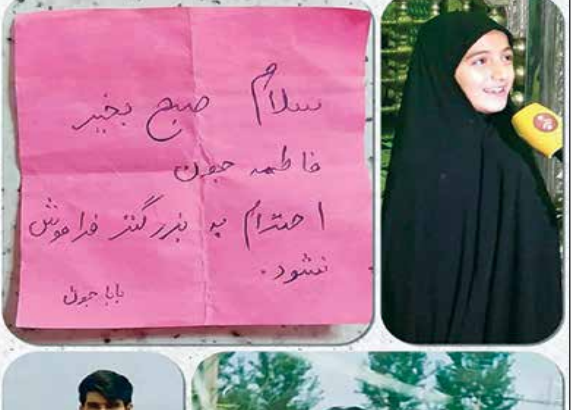 سلام صبح بخیر
فاطمه جون
احترام به بزرگتر فراموش
نشود.
بابا جون